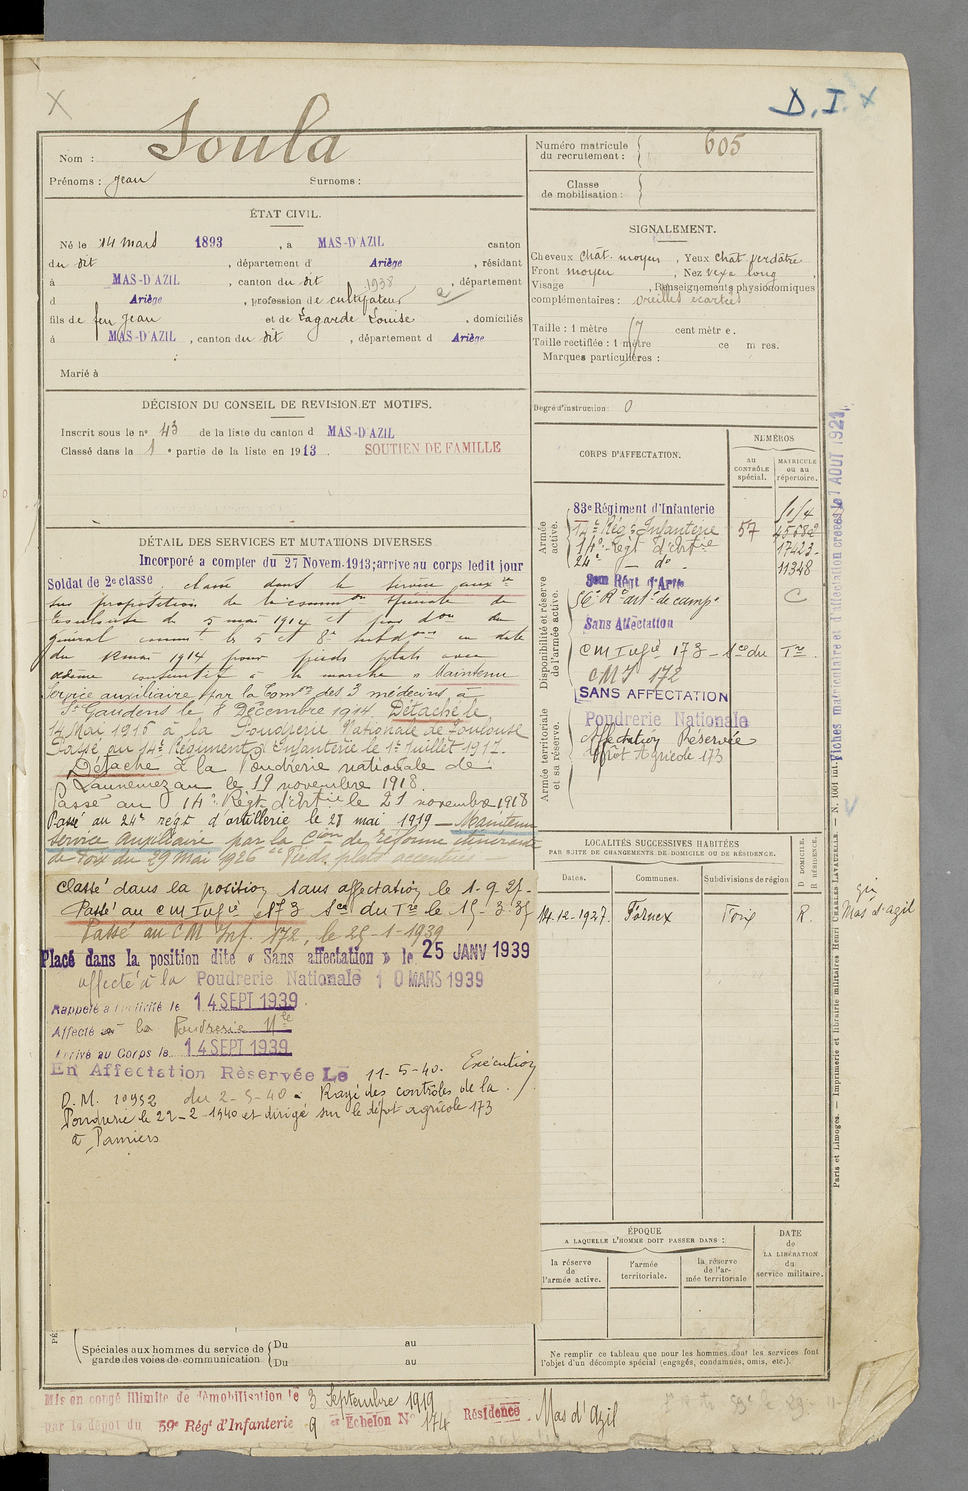 D. I. x
X
Nom : Soula
Prénoms : Jean Surnoms :
Numéro matricule du recrutement : 605
Classe de mobilisation :
ÉTAT CIVIL.
Né le 14 mars 1893, à MAS-D'AZIL canton
du dit, département d' Ariège, résidant
à MAS-D'AZIL, canton du dit 1938, département
d Ariège, profession de cultivateur
fils de feu Jean et de Lagarde Louise, domiciliés
à MAS-D'AZIL, canton du dit, département d Ariège
Marié à
SIGNALEMENT.
Cheveux chât. moyen, Yeux chât verdâtre
Front moyen, Nez vexe long,
Visage, Renseignements physionomiques
complémentaires : oreilles écartées
Taille : 1 mètre 67 cent mètr e.
Taille rectifiée : 1 mètre ce m res.
Marques particulières :
Degré d'instruction : 0
DÉCISION DU CONSEIL DE REVISION ET MOTIFS.
Inscrit sous le n° 43 de la liste du canton d MAS-D'AZIL
Classé dans la 1 e partie de la liste en 1913. SOUTIEN DE FAMILLE
DÉTAIL DES SERVICES ET MUTATIONS DIVERSES
Incorporé a compter du 27 Novem. 1913; arrive au corps ledit jour
Soldat de 2e classe. classé dans le service aux re
sur proposition de la comm on spéciale de
Toulouse du 5 mai 1914 et par d on du
général comm t les 5 et 8e subd ons en date
du 12 mai 1914 pour pieds plats avec
à la marche. Maintenu
Service auxiliaire par la Com on des 3 médecins à
St Gaudens le 8 Décembre 1914. Détaché le
14 Mai 1916 à la Poudrerie Nationale de Toulouse
Passé au 14e Régiment d'Infanterie le 1er Juillet 1917.
Détaché à la Poudrerie nationale de
Lannemezan le 19 novembre 1918.
Passé au 14e Régt d'Art ie le 21 novembre 1918
Passé au 24e regt d'artillerie le 28 mai 1919 — Maintenu
service auxiliaire par la C ion de réforme itinérante
de Foix du 29 Mai 1926 Pieds plats accentués —
Classé dans la position sans affectation le 1-9-27.
Passé au C M Inf ie 173 S on du T re le 15-3-35
Passé au CM Inf. 172, le 25-1-1939
Placé dans la position dite « Sans affectation » le 25 JANV 1939
affecté à la Poudrerie Nationale 10 MARS 1939
Rappelé à l'activité le 14 SEPT 1939
Affecté à la Poudrerie N le
Arrivé au Corps le 14 SEPT 1939
En Affectation Rèservée Le 11-5-40. Exécution
D.M. 10952 du 2-5-40. Rayé des contrôles de la
Poudrerie le 22-2-1940 et dirigé sur le dépôt agricole 173
à Pamiers
CORPS D'AFFECTATION.
NUMÉROS
AU CONTRÔLE spécial.
MATRICULE ou au répertoire.
Armée active.
83e Régiment d'Infanterie
14e Rég t Infanterie 57 45682
14e Régt d'Art ie 17423
24e — do — 11348
Disponibilité et réserve de l'armée active.
R t art ie de camp e C
Sans Affectation
C M Inf ie 173 — S on du T re
C M I 172
SANS AFFECTATION
Armée territoriale et sa réserve.
Poudrerie Nationale
Affectation Réservée
Dépôt Agricole 173
LOCALITÉS SUCCESSIVES HABITÉES
PAR SUITE DE CHANGEMENTS DE DOMICILE OU DE RÉSIDENCE.
Dates. Communes. Subdivisions de région D DOMICILE. R RÉSIDENCE.
14.12.1927. Fornex Foix R.
Mas d'azil
Fiches matriculaire et d'affectation créées le 7 AOUT 1921
Paris et Limoges. — Imprimerie et librairie militaires Henri CHARLES-LAVAUZELLE. — N. 1001 int.
ÉPOQUE
A LAQUELLE L'HOMME DOIT PASSER DANS :
la réserve de l'armée active.
l'armée territoriale.
la réserve de l'armée territoriale
DATE de LA LIBÉRATION du service militaire.
Ne remplir ce tableau que pour les hommes dont les services font
l'objet d'un décompte spécial (engagés, condamnés, omis, etc.).
PÉ
Spéciales aux hommes du service de garde des voies de communication
Du au
Du au
Mis en congé illimité de démobilisation le 3 Septembre 1919
par le dépôt du 59e Régt d'Infanterie 9 e Echelon N° 174 Résidence Mas d'Azil